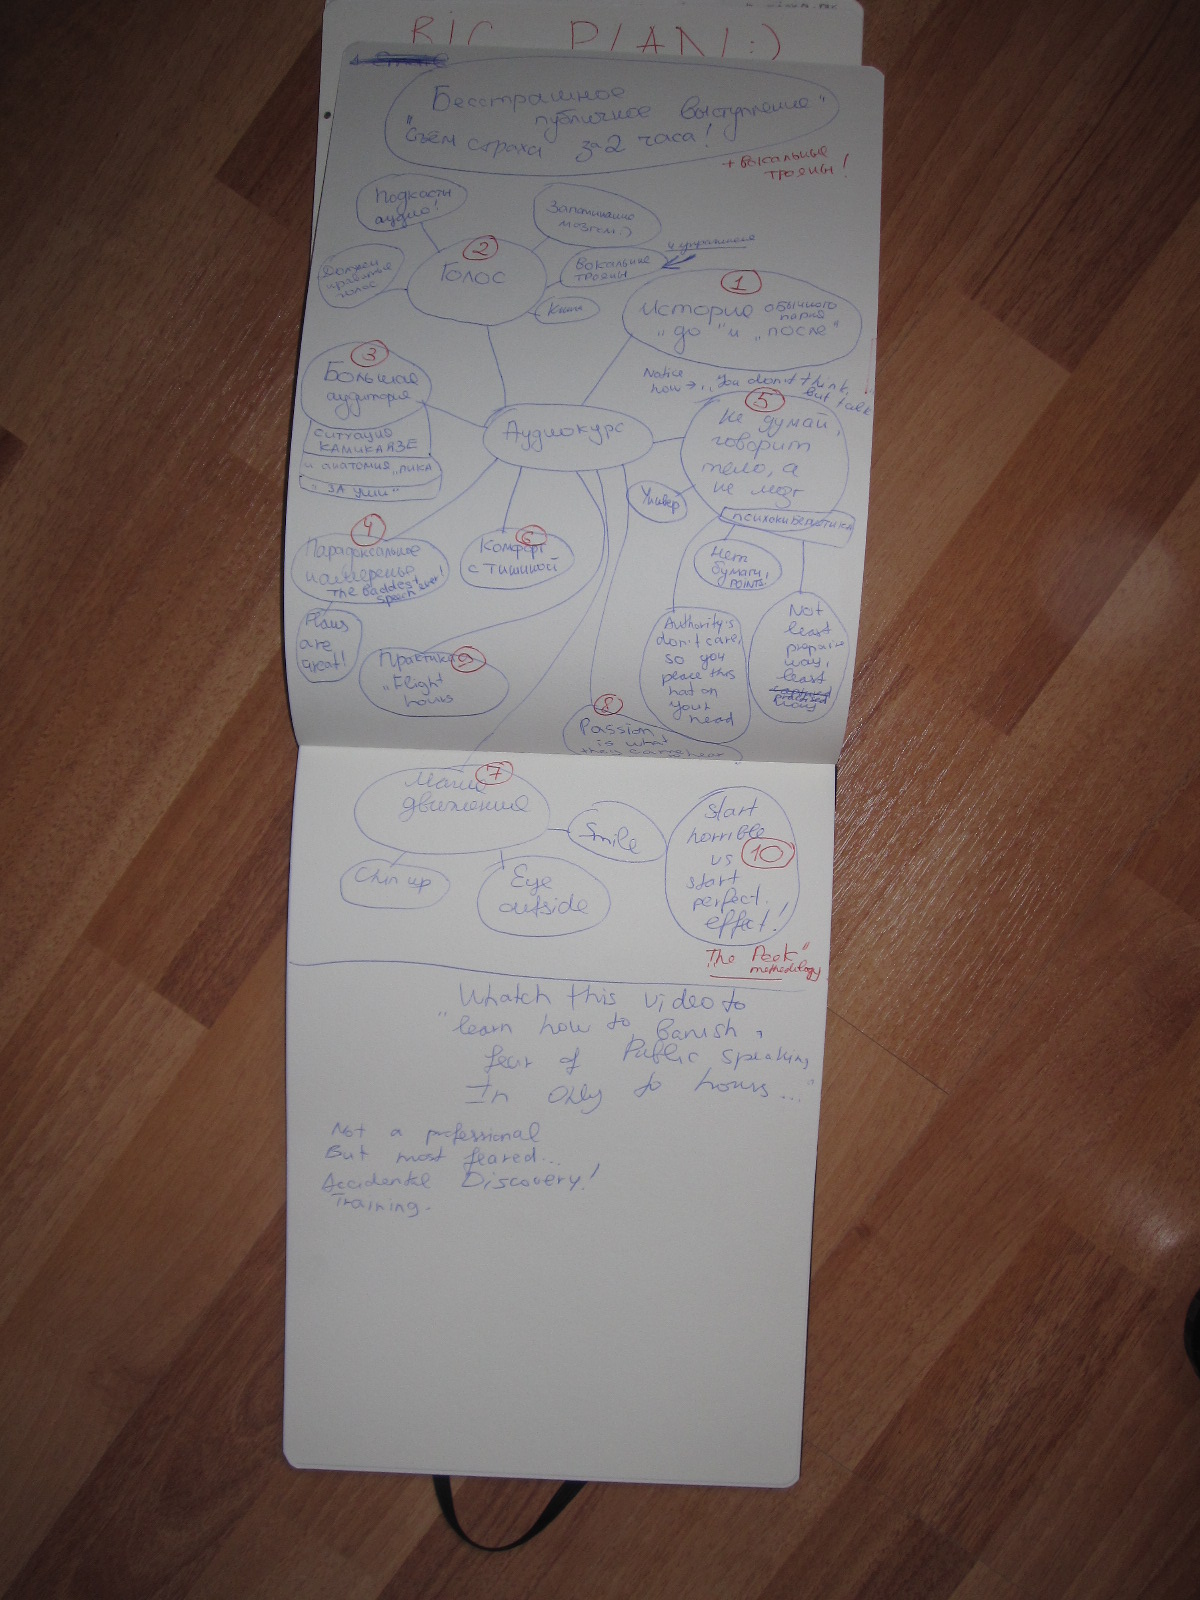 BIG PLAN :)
Бесстрашное
публичное выступление"
"Съем страха за 2 часа!
+ Вокальные
трояны!
Подкасты
аудио!
Запоминание
мозгом :)
Должен
нравиться
голос
2
Голос
Вокальные
трояны
и упражнения
Книги
1
История обычного
парня
"до" и "после"
3
Большая
аудитория
СИТУАЦИЯ
КАМИКАДЗЕ
и анатомия "пика
"ЗА УШИ"
Аудиокурс
Notice
how → "You don't think,
but talk
5
Не думай,
говорит
тело, а
не мозг
Универ
ПСИХОКИБЕРНЕТИКА
4
Парадоксальное
намеренье
The baddest
speech ever!
Flaws
are
great!
6
Комфорт
с тишиной
Нет
бумаги,
POINTS!
Authority's
don't care,
so you
peace this
hat on
your
head
Not
least
prepair
way,
least
practised
way
9
Практика
"Flight
hours
8
Passion
is what
they came hear
7
Магия
движения
Smile
Chin up
Eye
outside
start
horrible
vs
start
perfect
effect!
10
"The Peek"
methodology
Whatch this video to
"learn how to Banish
fear of Public Speaking
In Only to hours..."
Not a professional
But most feared...
Accidental Discovery!
Training.